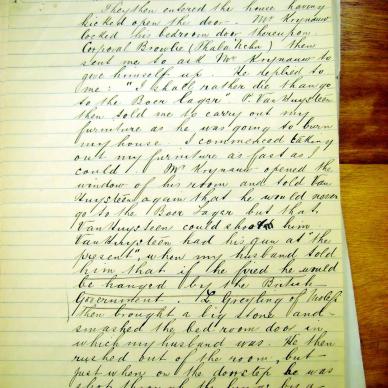 They then entered the house having
kicked open the door. Mr Krynauw
locked his bedroom door thereupon
Corporal Brownlie (Thalatichu) then
sent me to ask Mr Krynauw to
give himself up. He replied to
me: "I shall rather die than go
to the Boer lager" P. Van Huysteen
then told me to carry out my
furniture as he was going to burn
my house. I commenced taking
out my furniture as fast as I
could. Mr Krynauw opened the
window of his room and told Van
Huysteen again that he would never
go to the Boer Lager but that
Van Huysteen could shoot him
Van Huysteen had his gun at the
present", when my husband told
him that if he fired he would
be hanged by the British
Government. Greyling of
Then brought a big stone and
smashed the bed room door in
which my husband was. He then
rushed out of the room, but
just when on the doorstep he was